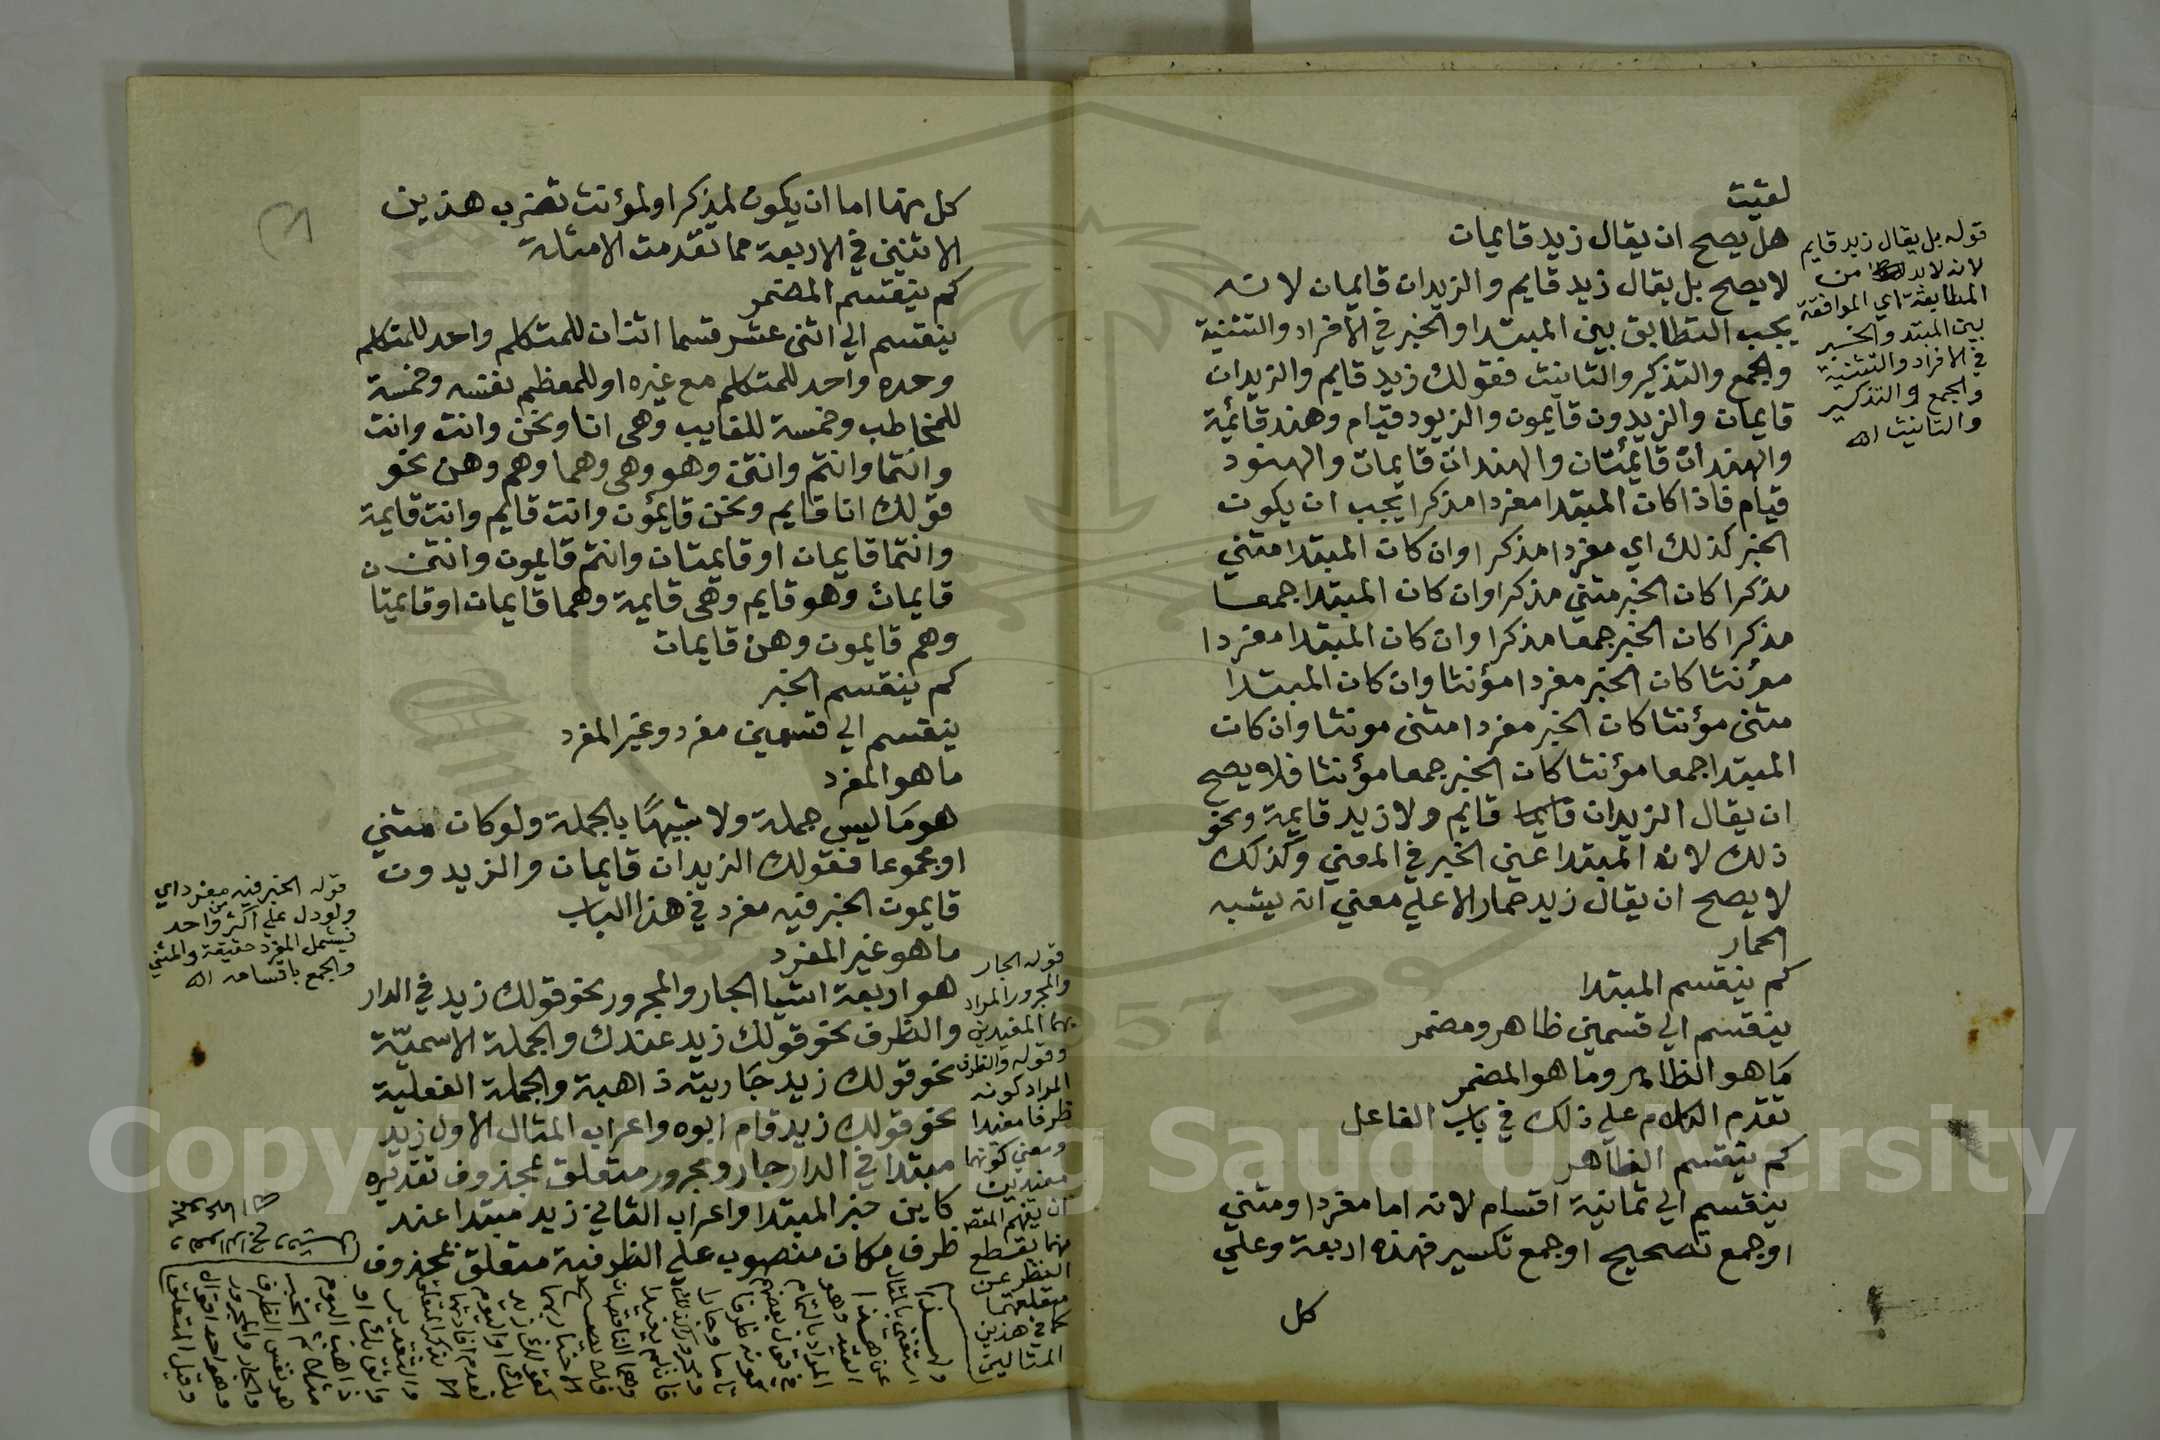 لقيت
هل يصح ان يقال زيد قايمان
لا يصح بل يقال زيد قايم والزيدان قايمان لانه
يجب التطابق بين المبتدا والخبر في الافراد والتثنية
والجمع والتذكير والتانيث فقولك زيد قايم والزيدان
قايمان والزيدون قايمون والزيود قيام وهند قائمة
والهندان قايمتان والهندات قايمات والهنود
قيام فاذا كان المبتدا مفردا مذكرا يجب ان يكون
الخبر كذلك اي مفردا مذكرا وان كان المبتدا مثني
مذكرا كان الخبر مثني مذكرا وان كان المبتدا جمعا
مذكرا كان الخبر جمعا مذكرا وان كان المبتدا مفردا
مؤنثا كان الخبر مفردا مؤنثا وان كان المبتدا
مثنى مؤنثا كان الخبر مفردا مثنى مونثا وان كان
المبتدا جمعا مؤنثا كان الخبر جمعا مؤنثا فلا يصح
ان يقال الزيدان قايم ولا زيد قايمة ونحو
ذلك لان المبتدا عين الخبر في المعني وكذلك
لا يصح ان يقال زيد حمار الا علي معني انه يشبه
الحمار
كم ينقسم المبتدا
ينقسم الي قسمين ظاهر ومضمر
ما هو الظاهر وما هو المضمر
تقدم الكلام علي ذلك في باب الفاعل
كم ينقسم الظاهر
ينقسم الي ثمانية اقسام لانه اما مفردا ومثني
او جمع تصحيح او جمع تكسير فهذه اربعة وعلي
كل
قوله بل يقال زيد قايم
لانه لابد من
المطابقة اي الموافقة
بين المبتدا والخبر
في الافراد والتثنية
والجمع والتذكير
والتانيث اه
كل منها اما ان يكون لمذكر او لمؤنث تضرب هذين
الاثنين في الاربعة مما تقدمت الامثلة
كم ينقسم المضمر
ينقسم الي اثني عشر قسما اثنان للمتكلم واحد للمتكلم
وحده واحد للمتكلم مع غيره او للمعظم نفسه وخمسة
للمخاطب وخمسة للغايب وهي انا ونحن وانت وانت
وانتما وانتم وانتن وهو وهي وهما وهم وهن نحو
قولك انا قايم ونحن قايمون وانت قايم وانت قايمة
وانتما قايمان او قايمتان وانتم قايمون وانتن
قايمات وهو قايم وهي قايمة وهما قايمان او قايمتا
وهم قايمون وهن قايمات
كم ينقسم الخبر
ينقسم الي قسمين مفرد وغير المفرد
ما هو المفرد
هو ما ليس جملة ولا شبيها بالجملة ولو كان مثني
او مجموعا فنقولك الزيدان قايمان والزيدون
قايمون الخبر فيه مفرد في هذا الباب
ما هو غير المفرد
هو اربعة اشيا الجار والمجرور نحو قولك زيد في الدار
والظرف نحو قولك زيد عندك والجملة الاسمية
نحو قولك زيد جاريته ذاهبة والجملة الفعلية
نحو قولك زيد قام ابوه واعراب المثال الاول زيد
مبتدا في الدار جار ومجرور متعلق بمحذوف تقديره
كاين خبر المبتدا واعراب الثاني زيد مبتدا عند
ظرف مكان منصوب علي الظرفية متعلق بمحذوف
قوله الخبر فيه مفرد اي
ولو دل علي اكثر من واحد
فيشمل المفرد حقيقة والمثني
والجمع باقسامه اه
قوله الجار
والمجرور المراد
بهما المفيدين
وقوله والظرف
المراد كونه
ظرفا مفيدا
ومعني كونهما
مفيدين
ان يفهم المعنى
منهما بقطع
النظر عن
متعلقهما
كما في هذين
المثالين
Copyright © King Saud University
1957